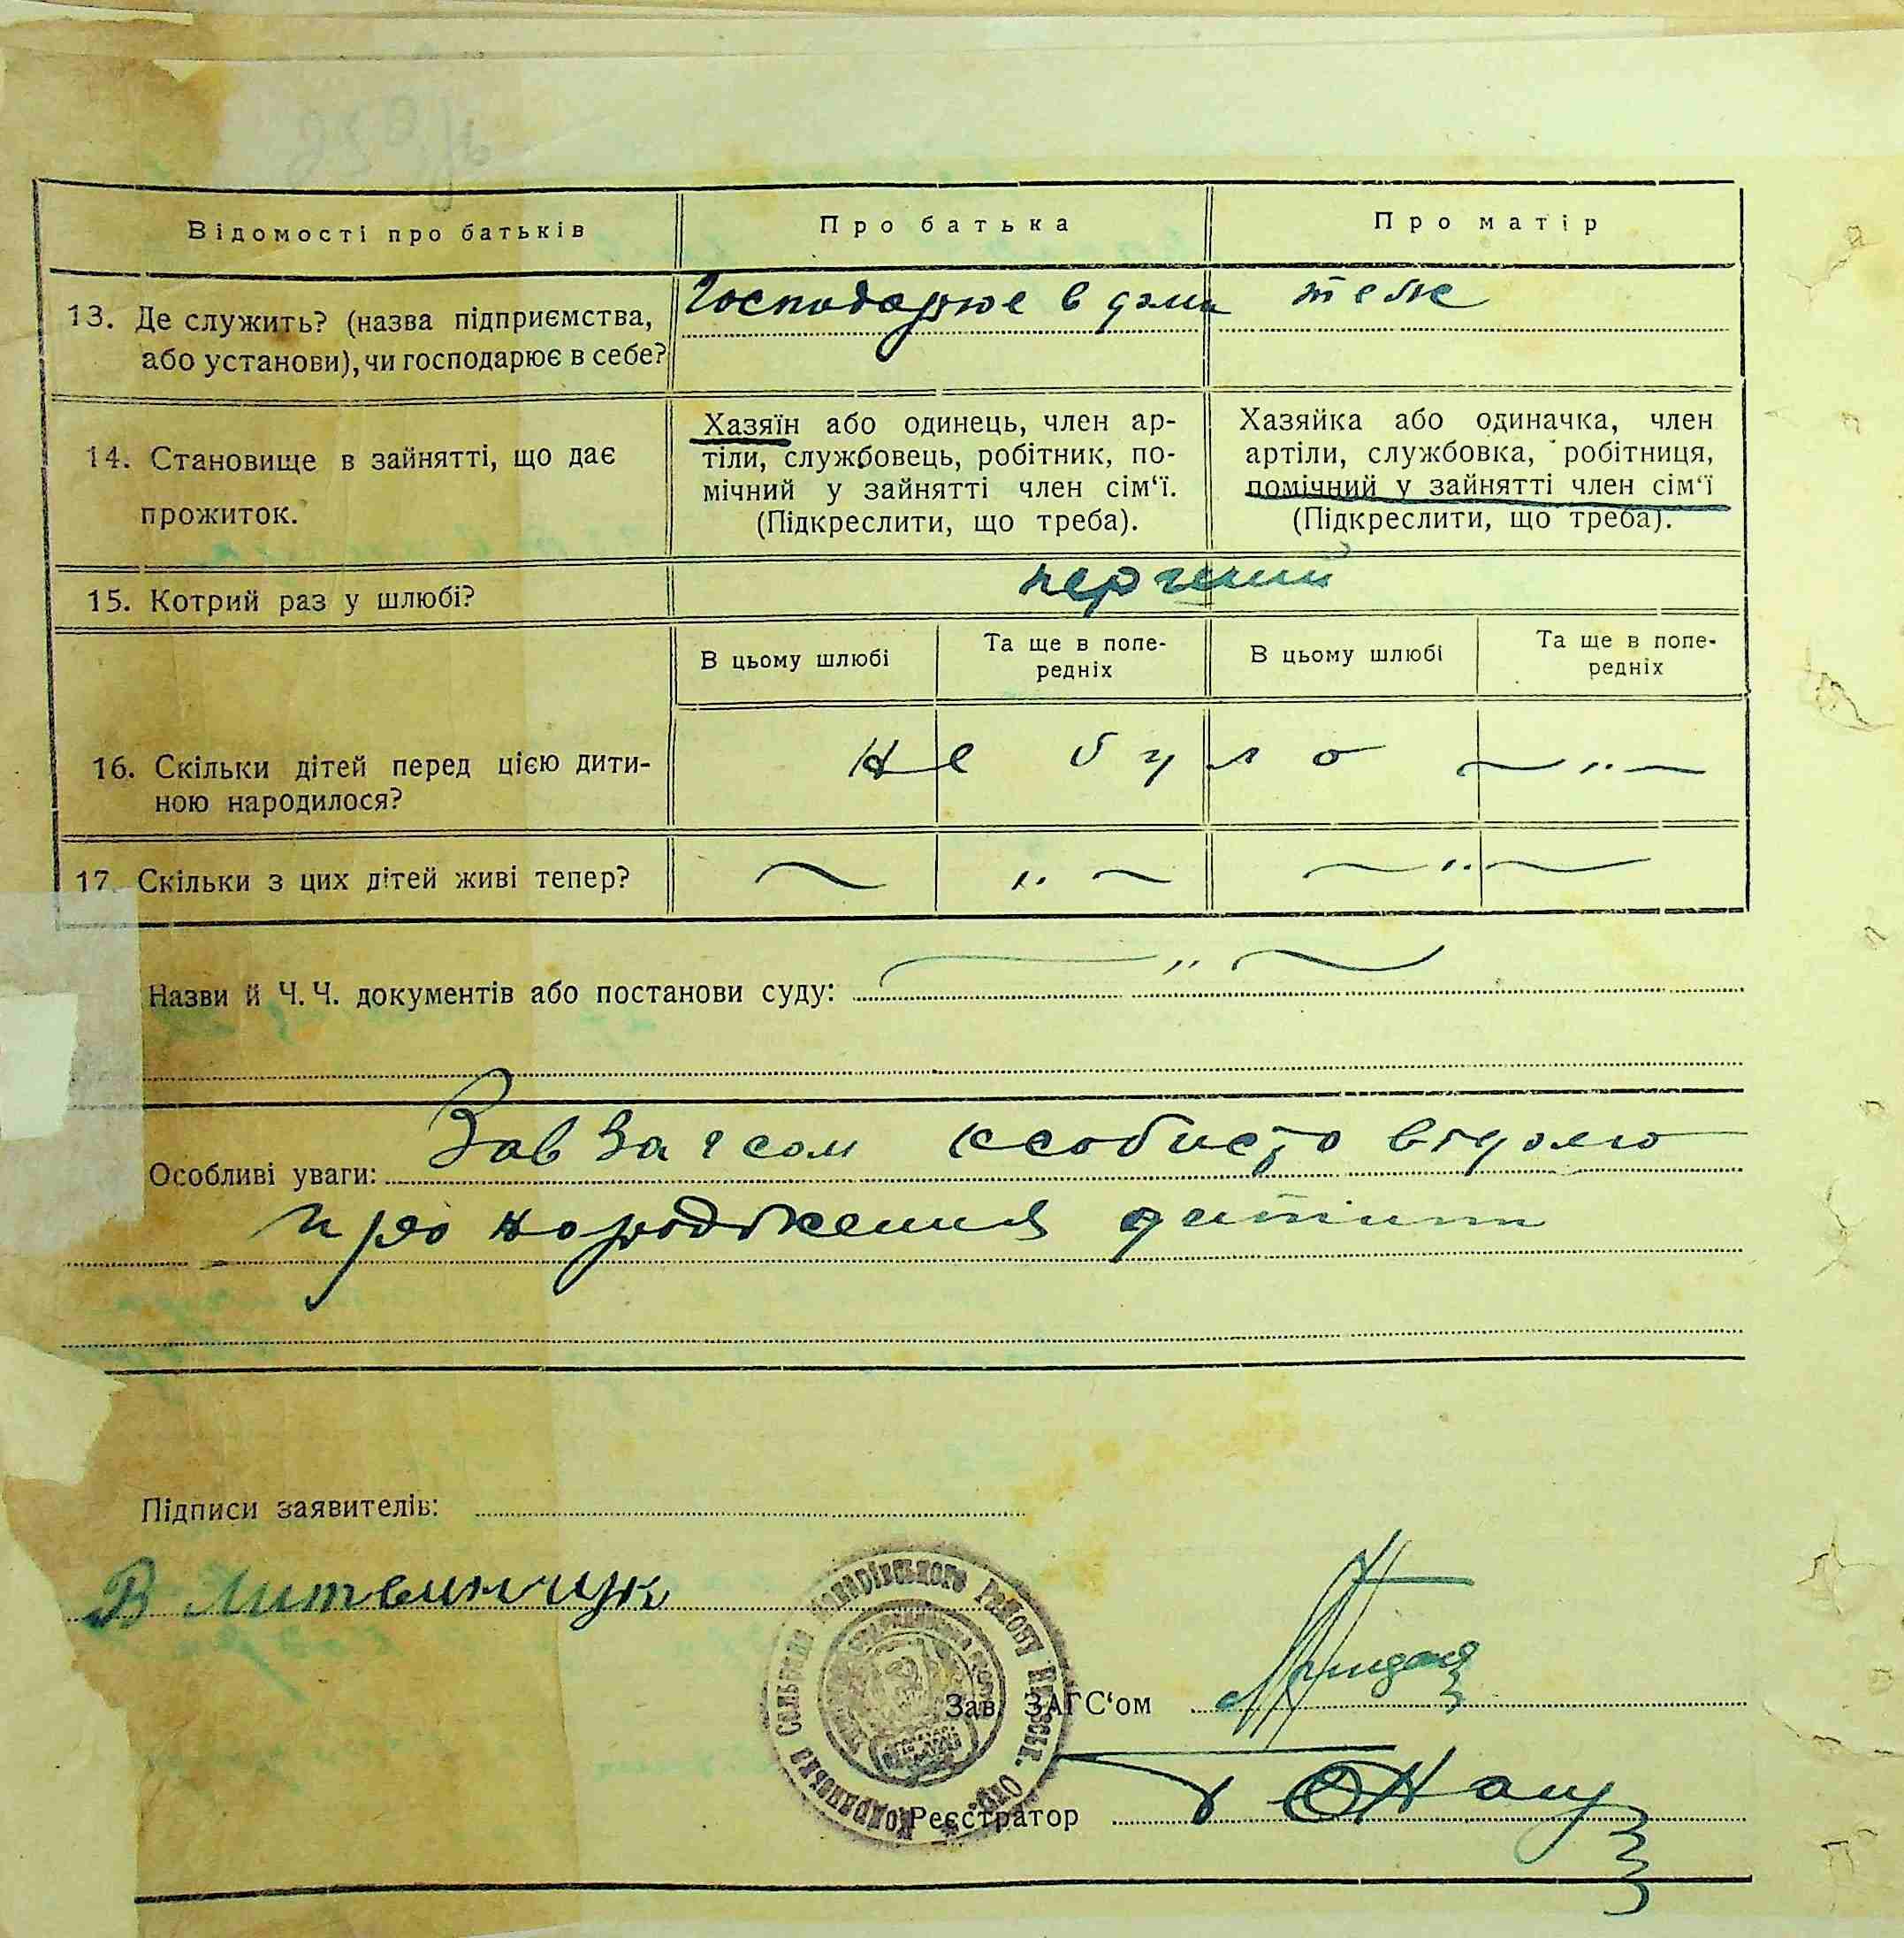 Відомості про батьків
Про батька
Про матір
13. Де служить? (назва підприємства,
або установи), чи господарює в себе?
Господарює в домі
теж
14. Становище в зайнятті, що дає
прожиток.
Хазяїн або одинець, член ар-
тіли, службовець, робітник, по-
мічний у зайнятті член сім'ї.
(Підкреслити, що треба).
Хазяйка або одиначка, член
артіли, службовка, робітниця,
помічний у зайнятті член сім'ї
(Підкреслити, що треба).
15. Котрий раз у шлюбі?
перший
В цьому шлюбі
Та ще в попе-
редніх
В цьому шлюбі
Та ще в попе-
редніх
16. Скільки дітей перед цією дити-
ною народилося?
Не було — „ —
17. Скільки з цих дітей живі тепер?
— „ — — „ —
Назви й Ч.Ч. документів або постанови суду: — „ —
Особливі уваги: Зав Загсом особисто відомо
про народження дитини
Підписи заявителів:
В Литвинчук
Кодрянська Сільрада Макарівського Району Київськ. Окр.
Зав. ЗАГС'ом
Реєстратор